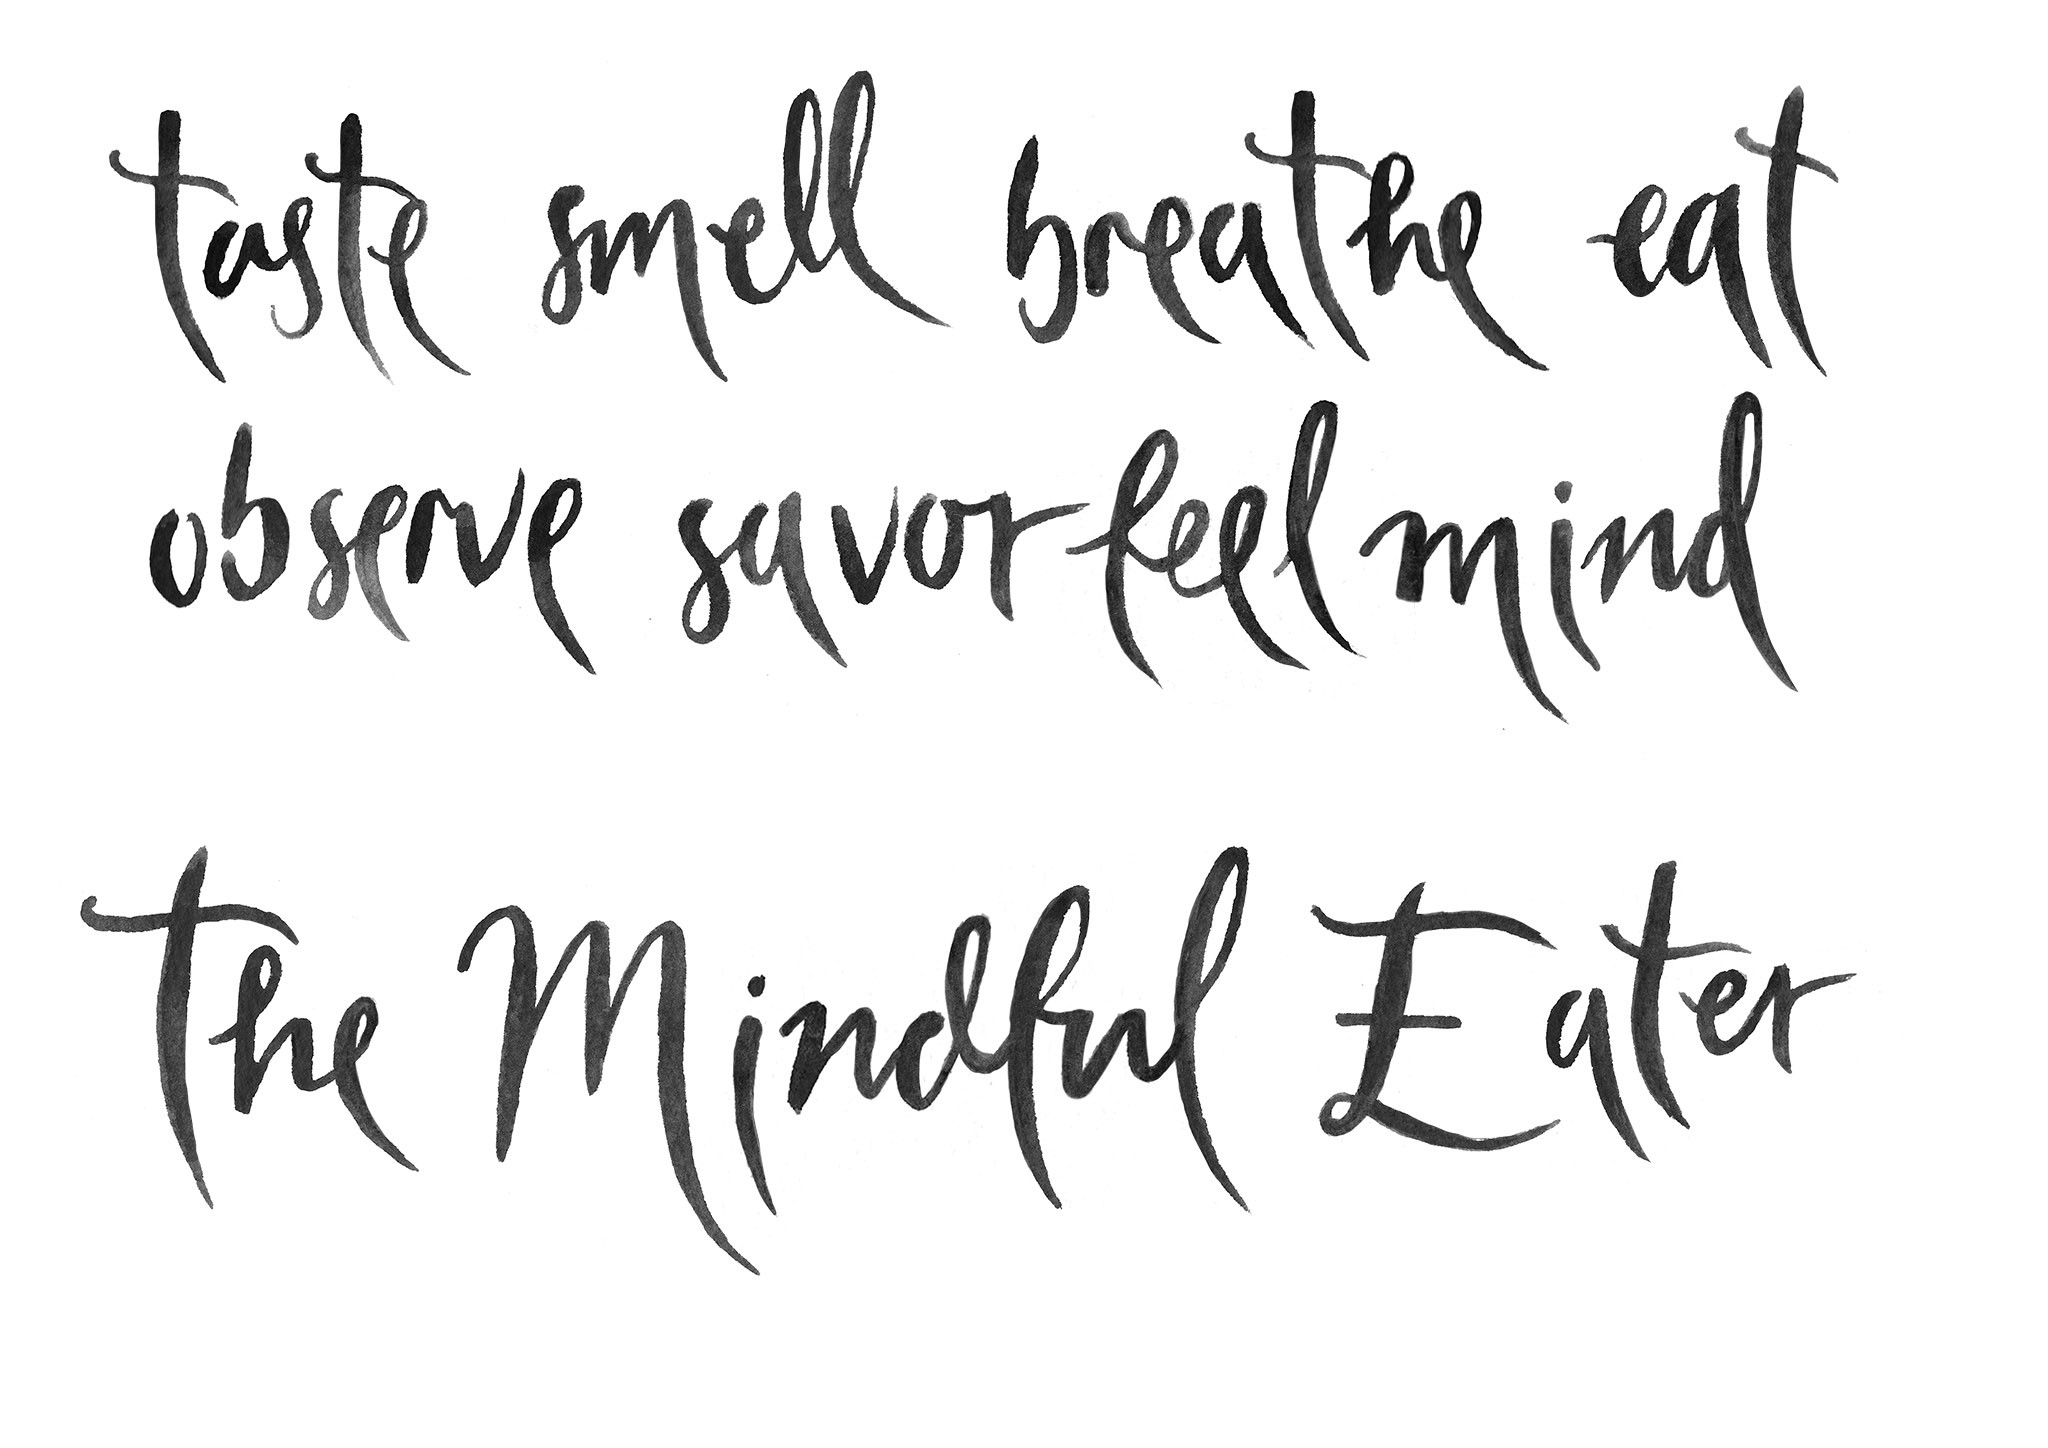 taste smell breathe eat
observe savor feel mind
the Mindful Eater